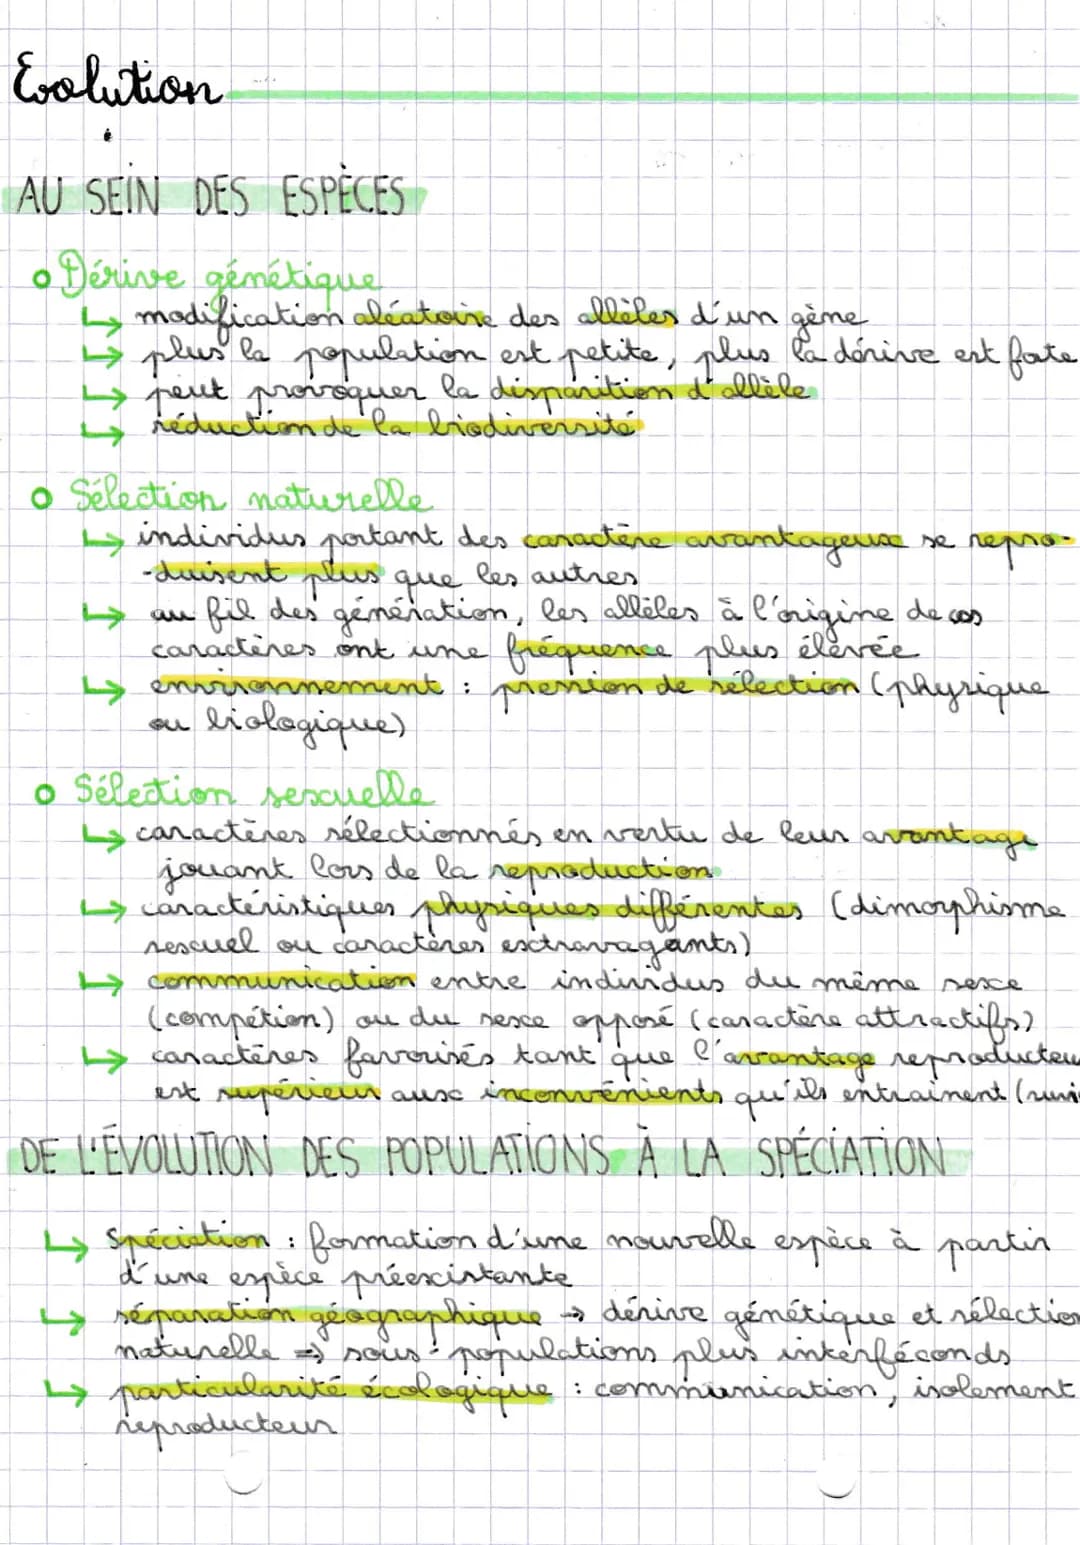 Evolution
AU SEIN DES ESPÈCES
Dérive génétique
↳ modification aléatoire des allèles d'un gène
↳ plus la population est petite, plus la dérive est forte
↳ peut provoquer la disparition d'allèle
↳ réduction de la biodiversité
Sélection naturelle
↳ individus portant des caractère avantageux se repro-
-duisent plus que les autres
↳ au fil des génération, les allèles à l'origine de ces
caractères ont une fréquence plus élevée
↳ environnement : pression de sélection (physique
ou biologique)
Sélection sexuelle
↳ caractères sélectionnés en vertu de leur avantage
jouant lors de la reproduction
↳ caractéristiques physiques différentes (dimorphisme
sexuel ou caractères extravagants)
↳ communication entre individus du même sexe
(compétion) ou du sexe opposé (caractère attractifs)
↳ caractères favorisés tant que l'avantage reproducteur
est supérieur aux inconvénients qu'ils entrainent (survi
DE L'ÉVOLUTION DES POPULATIONS À LA SPÉCIATION
↳ Spéciation : formation d'une nouvelle espèce à partir
d'une espèce préexistante
↳ séparation géographique → dérive génétique et sélection
naturelle ⇒ sous-populations plus interféconds
↳ particularité écologique : communication, isolement
reproducteur